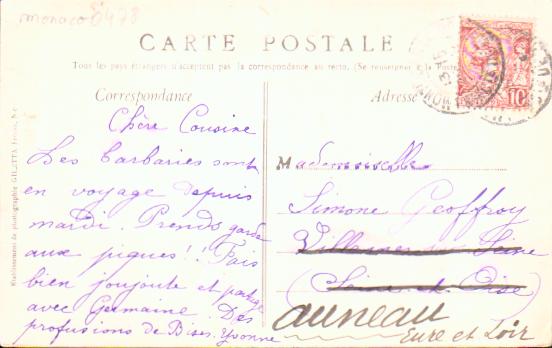 Monaco 6478
CARTE POSTALE
Tous les pays étrangers n'acceptent pas la correspondance au recto. (Se renseigner à la Poste
Correspondance
Adresse
Chère Cousine
Les barbaries sont
en voyage depuis
mardi. Prends garde
aux piques!! Fais
bien joujoute et partage
avec Germaine. Des
profusions de Bises. Yvonne
Mademoiselle
Simone Geoffroy
Seine
(Seine et Oise)
auneau
Eure et Loir
10
Etablissement de photographie GILETTA